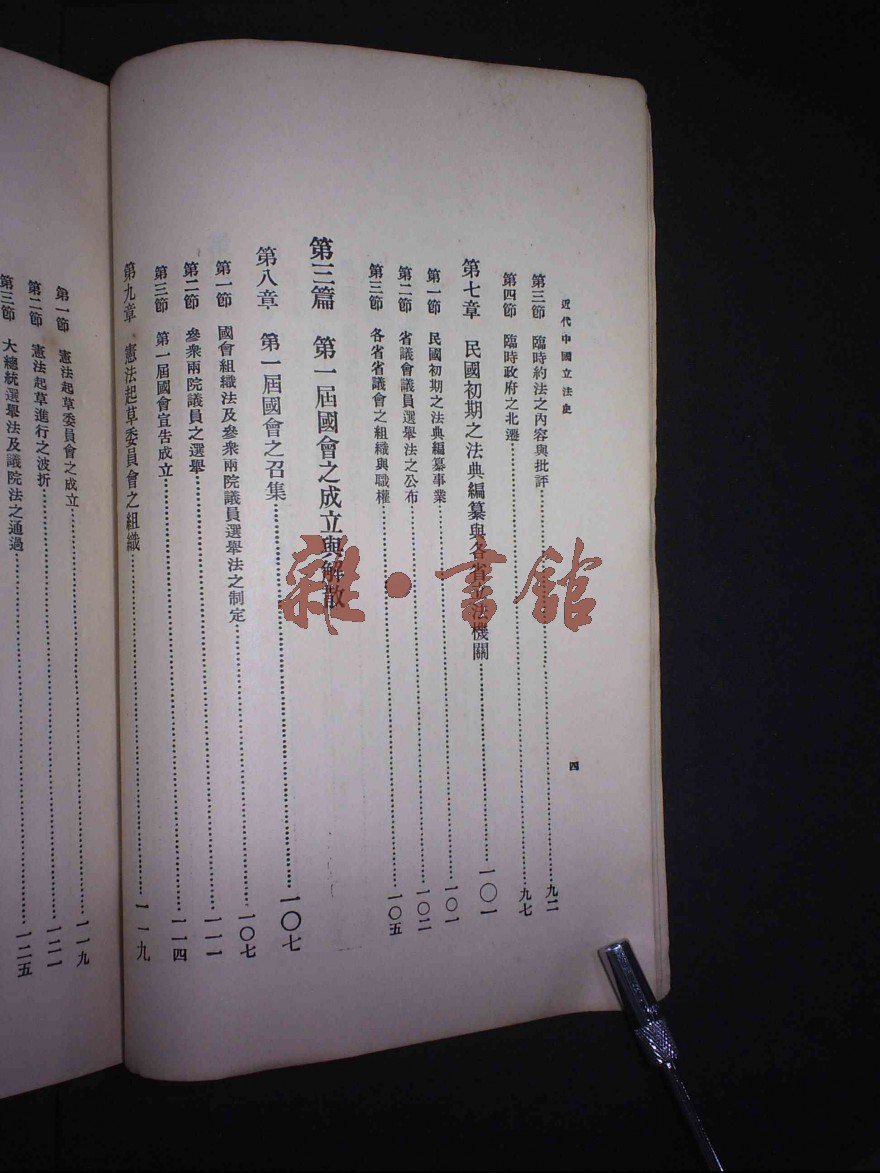 近代中國立法史
四
第三節 臨時約法之內容與批評……九二
第四節 臨時政府之北遷……九七
第七章 民國初期之法典編纂與各省立法機關……一〇一
第一節 民國初期之法典編纂事業……一〇一
第二節 省議會議員選舉法之公布……一〇二
第三節 各省省議會之組織與職權……一〇五
第三篇 第一屆國會之成立與解散
第八章 第一屆國會之召集……一〇七
第一節 國會組織法及參衆兩院議員選舉法之制定……一〇七
第二節 參衆兩院議員之選舉……一一一
第三節 第一屆國會宣告成立……一一四
第九章 憲法起草委員會之組織……一一九
第一節 憲法起草委員會之成立……一一九
第二節 憲法起草進行之波折……一二一
第三節 大總統選舉法及議院法之通過……一二五
雜·書館